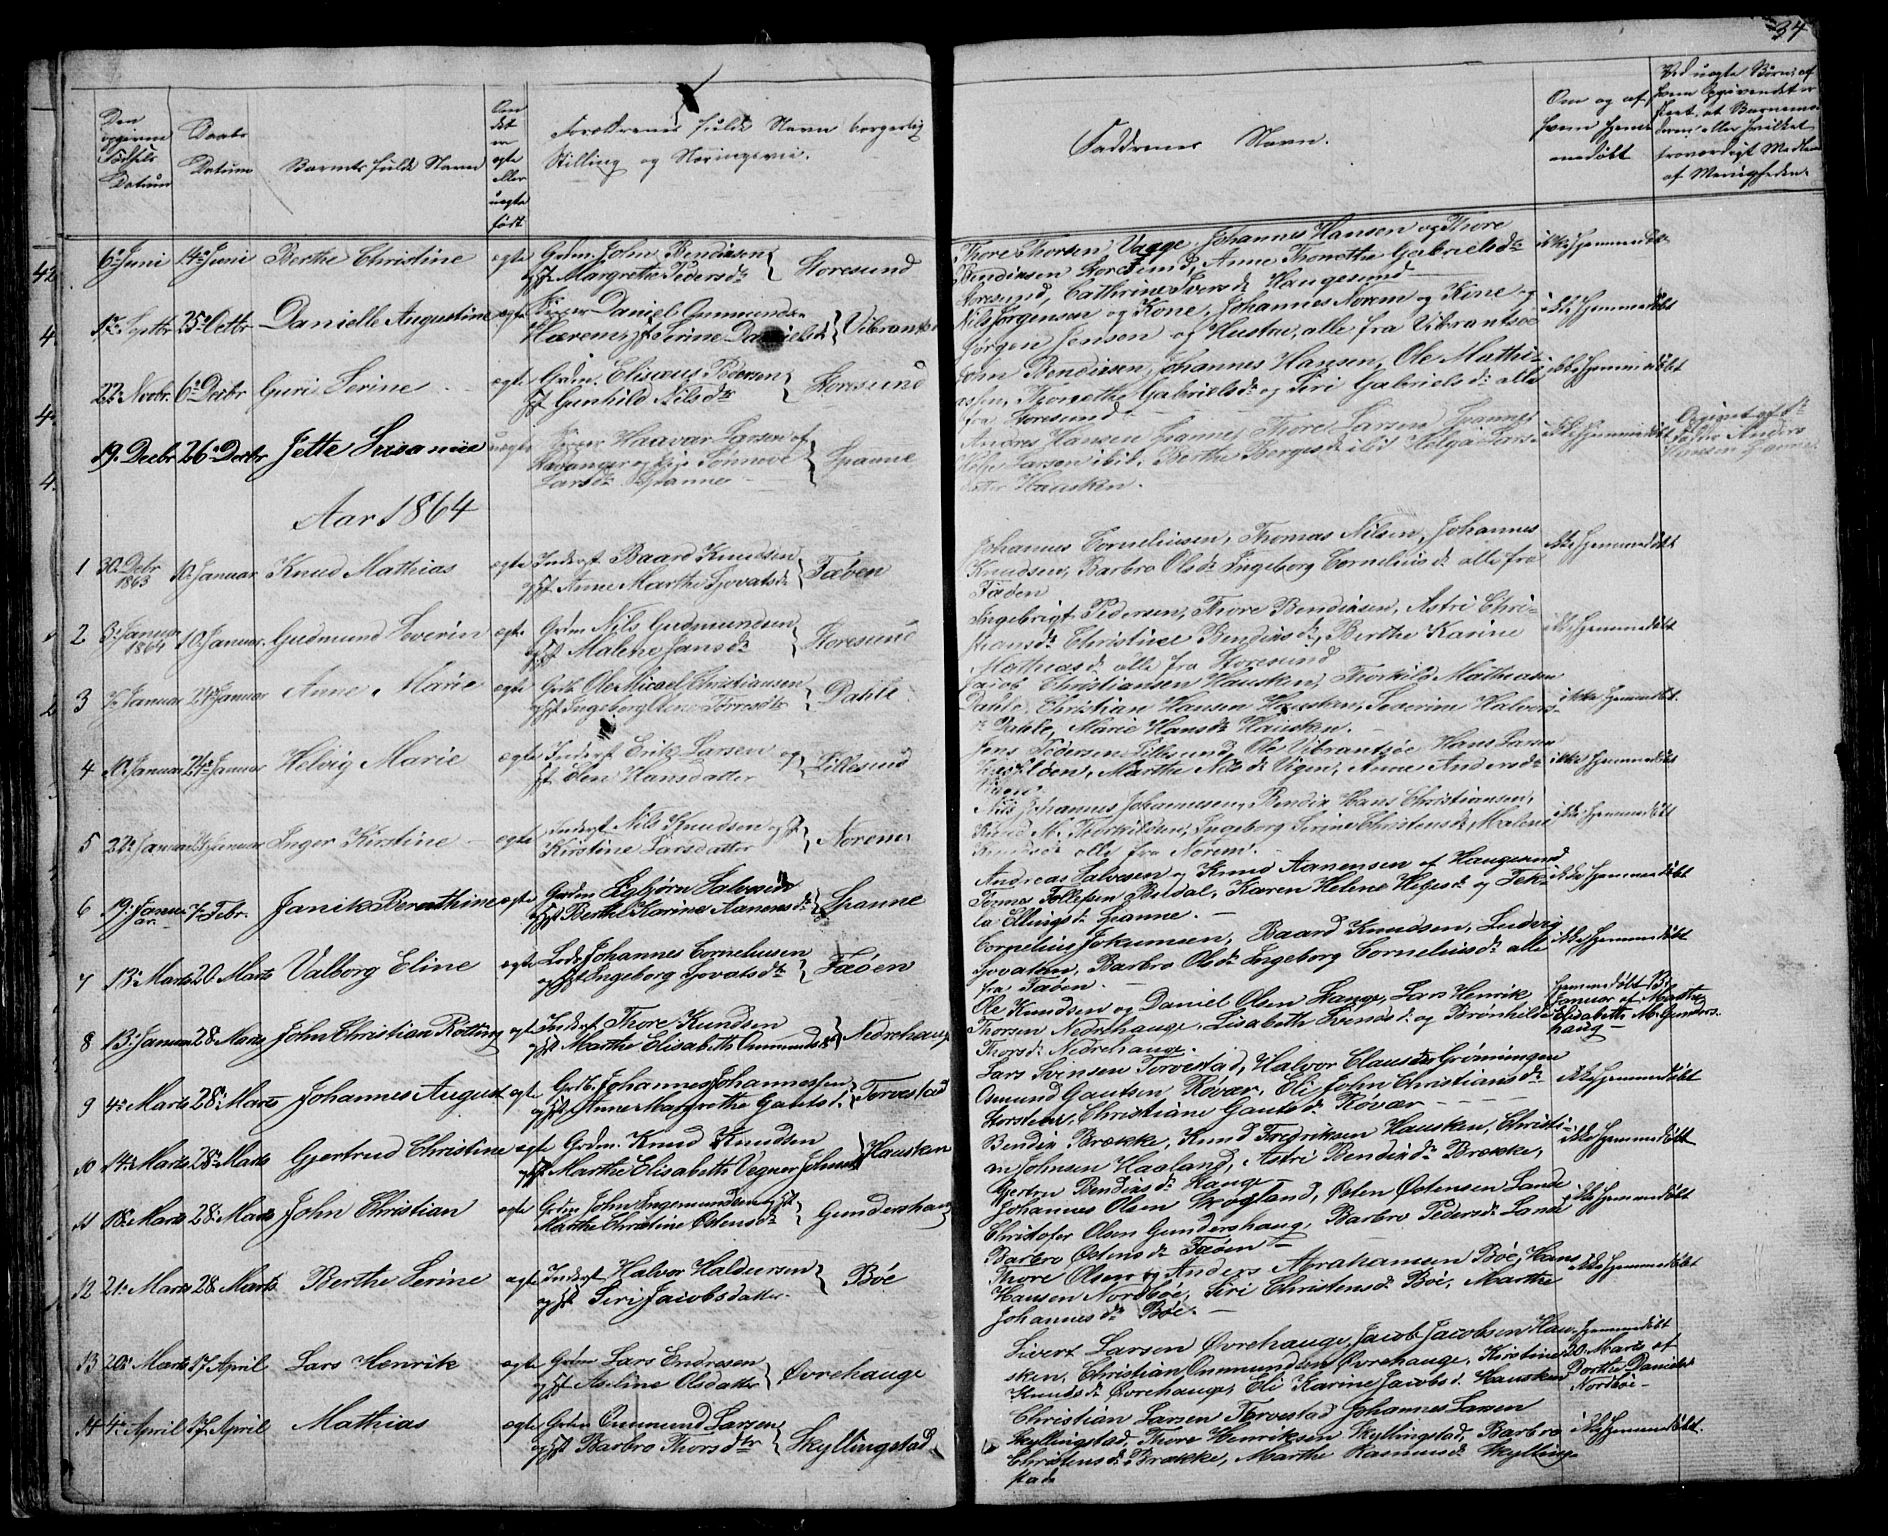 34
Den opgivne Fødsels Datum
Daabs Datum
Barnets fulde Navn
Om det er ægte eller uægte født
Forældrenes fulde Navn borgerlig
Stilling og Næringsvei.
Faddrenes Navn.
Om og af hvem hjemmedøbt
Ved uægte Børn; af
hvem Opgivendet er
skeet, at Barnemo-
deren eller hvilket
troværdigt Medlem
af Menigheden.
6te Juni 14de Juni Berthe Christine ægte Grdm. John Bendixsen
og h. Margrethe Pedersdr. Storesund
Thore Thorsen Vaage, Johannes Hansen og Thore
Bendixsen Storesund, Anne Thonette Gabrielsdr.
Storesund, Cathrine Iversdr. Haugesund
ikke hjemmedøbt
4. 1ste Septbr 25 Octbr Danielle Augustine ægte Daniel Ommundsen
Hærem, h. Serine Danielsdr. Vibrantsø
Nils Jørgensen og Kone, Johannes Norem og Kone og
Jørgen Jensen og Hustru, alle fra Vibrantsøe
ikke hjemmedøbt
4. 22de Novbr. 6te Decbr Guri Serine ægte Grdm. Elisæus Pedersen
h. Gunhild Nilsdr Storesund
John Bendixsen, Johannes Hansen, Ole Mathi-
assen, Thonethe Gabrielsdr. og Siri Gabrielsdr. alle
fra Storesund
ikke hjemmedøbt
4. 19de Decbr 26de Decbr Jette Susanne uægte Haavar Larsen af
Stavanger og Pige Sønneve
Larsdr. Spanne Spanne
Andres Hansen Spanne, Thore Larsen Spanne,
Helge Larsen ibid. Berthe Børgesdr. ibid Helga Lars-
datter Hausken.
ikke hjemmedøbt
Opgivet af
Anders
Hansen Spanne
Aar 1864
1 30 Debr 1863 10 Januar Knud Mathias ægte Inderst Baard Knudsen
og h. Anne Marthe Sjovatsdr. Fæøen
Johannes Corneliussen, Thomas Nilsen, Johannes
Knudsen, Barbro Olsdr. Ingeborg Corneliusdr. alle fra
Fæøen
ikke hjemmedøbt
2 3 Januar 1864 10 Januar. Gudmund Severin ægte Grdm Nils Gudmundsen
og h. Malene Jansdr. Storesund
Ingebrigt Pedersen, Thore Bendixsen, Astri Chri-
stiansdr. Christine Bendixsdr., Berthe Karine
Mathiasdr. alle fra Storesund
ikke hjemmedøbt
3 7 Januar 24 Januar Anne Marie ægte Ole Micael Christiansen
og h. Ingeborg Torresdtr Dahle
Jacob Christiansen Hausken, Thorkild Mathiasen
Dahle, Christian Hansen Hausken, Severine Halvors-
dr. Dahle, Marie Hansdr. Hausken.
ikke hjemmedøbt.
4 12 Januar 24 Januar Helvig Marie ægte Inderst Erik Larsen og
h. Elen Hansdatter Lillesund
Jens Pedersen Lillesund, Ole Vibrantsøe Hans Larsen
Marthe Nilsdr. Vigen, Anne Andersdr.
ikke hjemmedøbt
5 22 Januar 24 Januar Inger Kirstine ægte Inderst Nils Knudsen og h.
Kirstine Larsdatter Norem
Nils Johannes Johannesen, Bendix Hans Christiansen,
Knud M. Thorkildsen, Ingeborg Serine Christensdr. Malene
Knudsdr. alle fra Norem.
ikke hjemmedøbt
6 19 Januar. 7 Febr. Janik Berathine ægte Grdm Esbjørn Salvesen
og h. Berthe Karine Aanensdr. Spanne
Andreas Salvesen og Knud Aanensen af Haugesund
Tønnes Tollefsen Buldal, Karen Helene Helgesdr. og Tek-
la Ellingsdr. Spanne.
ikke hjemmedøbt
7 13 Marts 20 Marts Valborg Eline ægte Lods Johannes Corneliussen
og h. Ingeborg Sjovatsdr. Fæøen
Cornelius Jokumsen, Baard Knudsen, Ludvig
Sjovatsen, Barbro Olsdr. Ingeborg Corneliusdr. alle
fra Fæøen.
ikke hjemmedøbt
8 13 Januar 28 Marts John Christian Rötting ægte Inderst Thore Knudsen
og h. Marthe Elisabeth Ommundsdr. Nedrehaug
Ole Knudsen og Daniel Olsen Stange, Lars Henrik
Thorsen Nedrehauge, Lisabeth Svendsdr. og Brønhilde
Thorsdr. Nedrehauge.
hjemmedøbt
Januar af Marthe
Elisabeth M. Gunders-
haug
9 4 Marts 28 Marts Johannes August ægte Johannes Johannessen
og h. Anne Margrethe Gautsdr. Torvestad
Lars Svensen Torvestad, Halvor Clausen Grønningen
Osmund Gautsen Røvær, Eli John Christiansdr.
Storsteen, Christiane Gautsdr. Røvær
ikke hjemmedøbt
10 14 Marts 28 Marts Gjertrud Christine ægte Grdm. Knud Knudsen
og h. Marthe Elisabeth Vegner Johnsdr. Hausken
Bendix Brække, Knud Fredriksen Hausken, Christi-
an Johnsen Haaland, Astri Bendixdr. Brække,
Gjertru Bendixsdr. Haug
ikke hjemmedøbt
11 18 Marts 28 Marts John Christian ægte Grdm John Ingemundsen og h.
Marthe Christine Østensdr. Gundershaug
Johannes Olsen Skogland, Østen Østensen Lande
Christofer Olsen Gundershaug, Barbro Pedersdr. Lande
Barbro Østensdr. Fæøen
ikke hjemmedøbt
12 21 Marts 28 Marts Berthe Serine ægte Inderst Halvor Haldorsen
og h. Siri Jacobsdatter. Bøe
Thore Olsen og Anders Abrahamsen Bøe, Hans
Hansen Nordbøe, Siri Christensdr. Bøe, Marthe
Johannesdr. Bøe.
ikke hjemmedøbt
13 20 Marts 17 April Lars Henrik ægte Grdm Lars Endresen
og h. Aseline Olsdatter Øvrehauge
Sivert Larsen Øvrehauge, Jacob Jacobsen Hau-
sken, Christian Ommundsen Øvrehauge, Kirstine
Knudsdr. Øvrehauge, Eli Karine Jacobsd. Hausken
hjemmedøbt
20 Marts af
Dorthe Danielsdr
Nordbøe
14 4 April 17 April Mathias ægte Grdm Ommund Larsen
og h. Barbro Thorsdtr Skyllingstad
Christian Larsen Torvestad Johannes Larsen
Skyllingstad, Thore Henriksen Skyllingstad, Barbro
Christensdr. Brække, Marthe Rasmusd. Skylling-
stad
ikke hjemmedøbt.